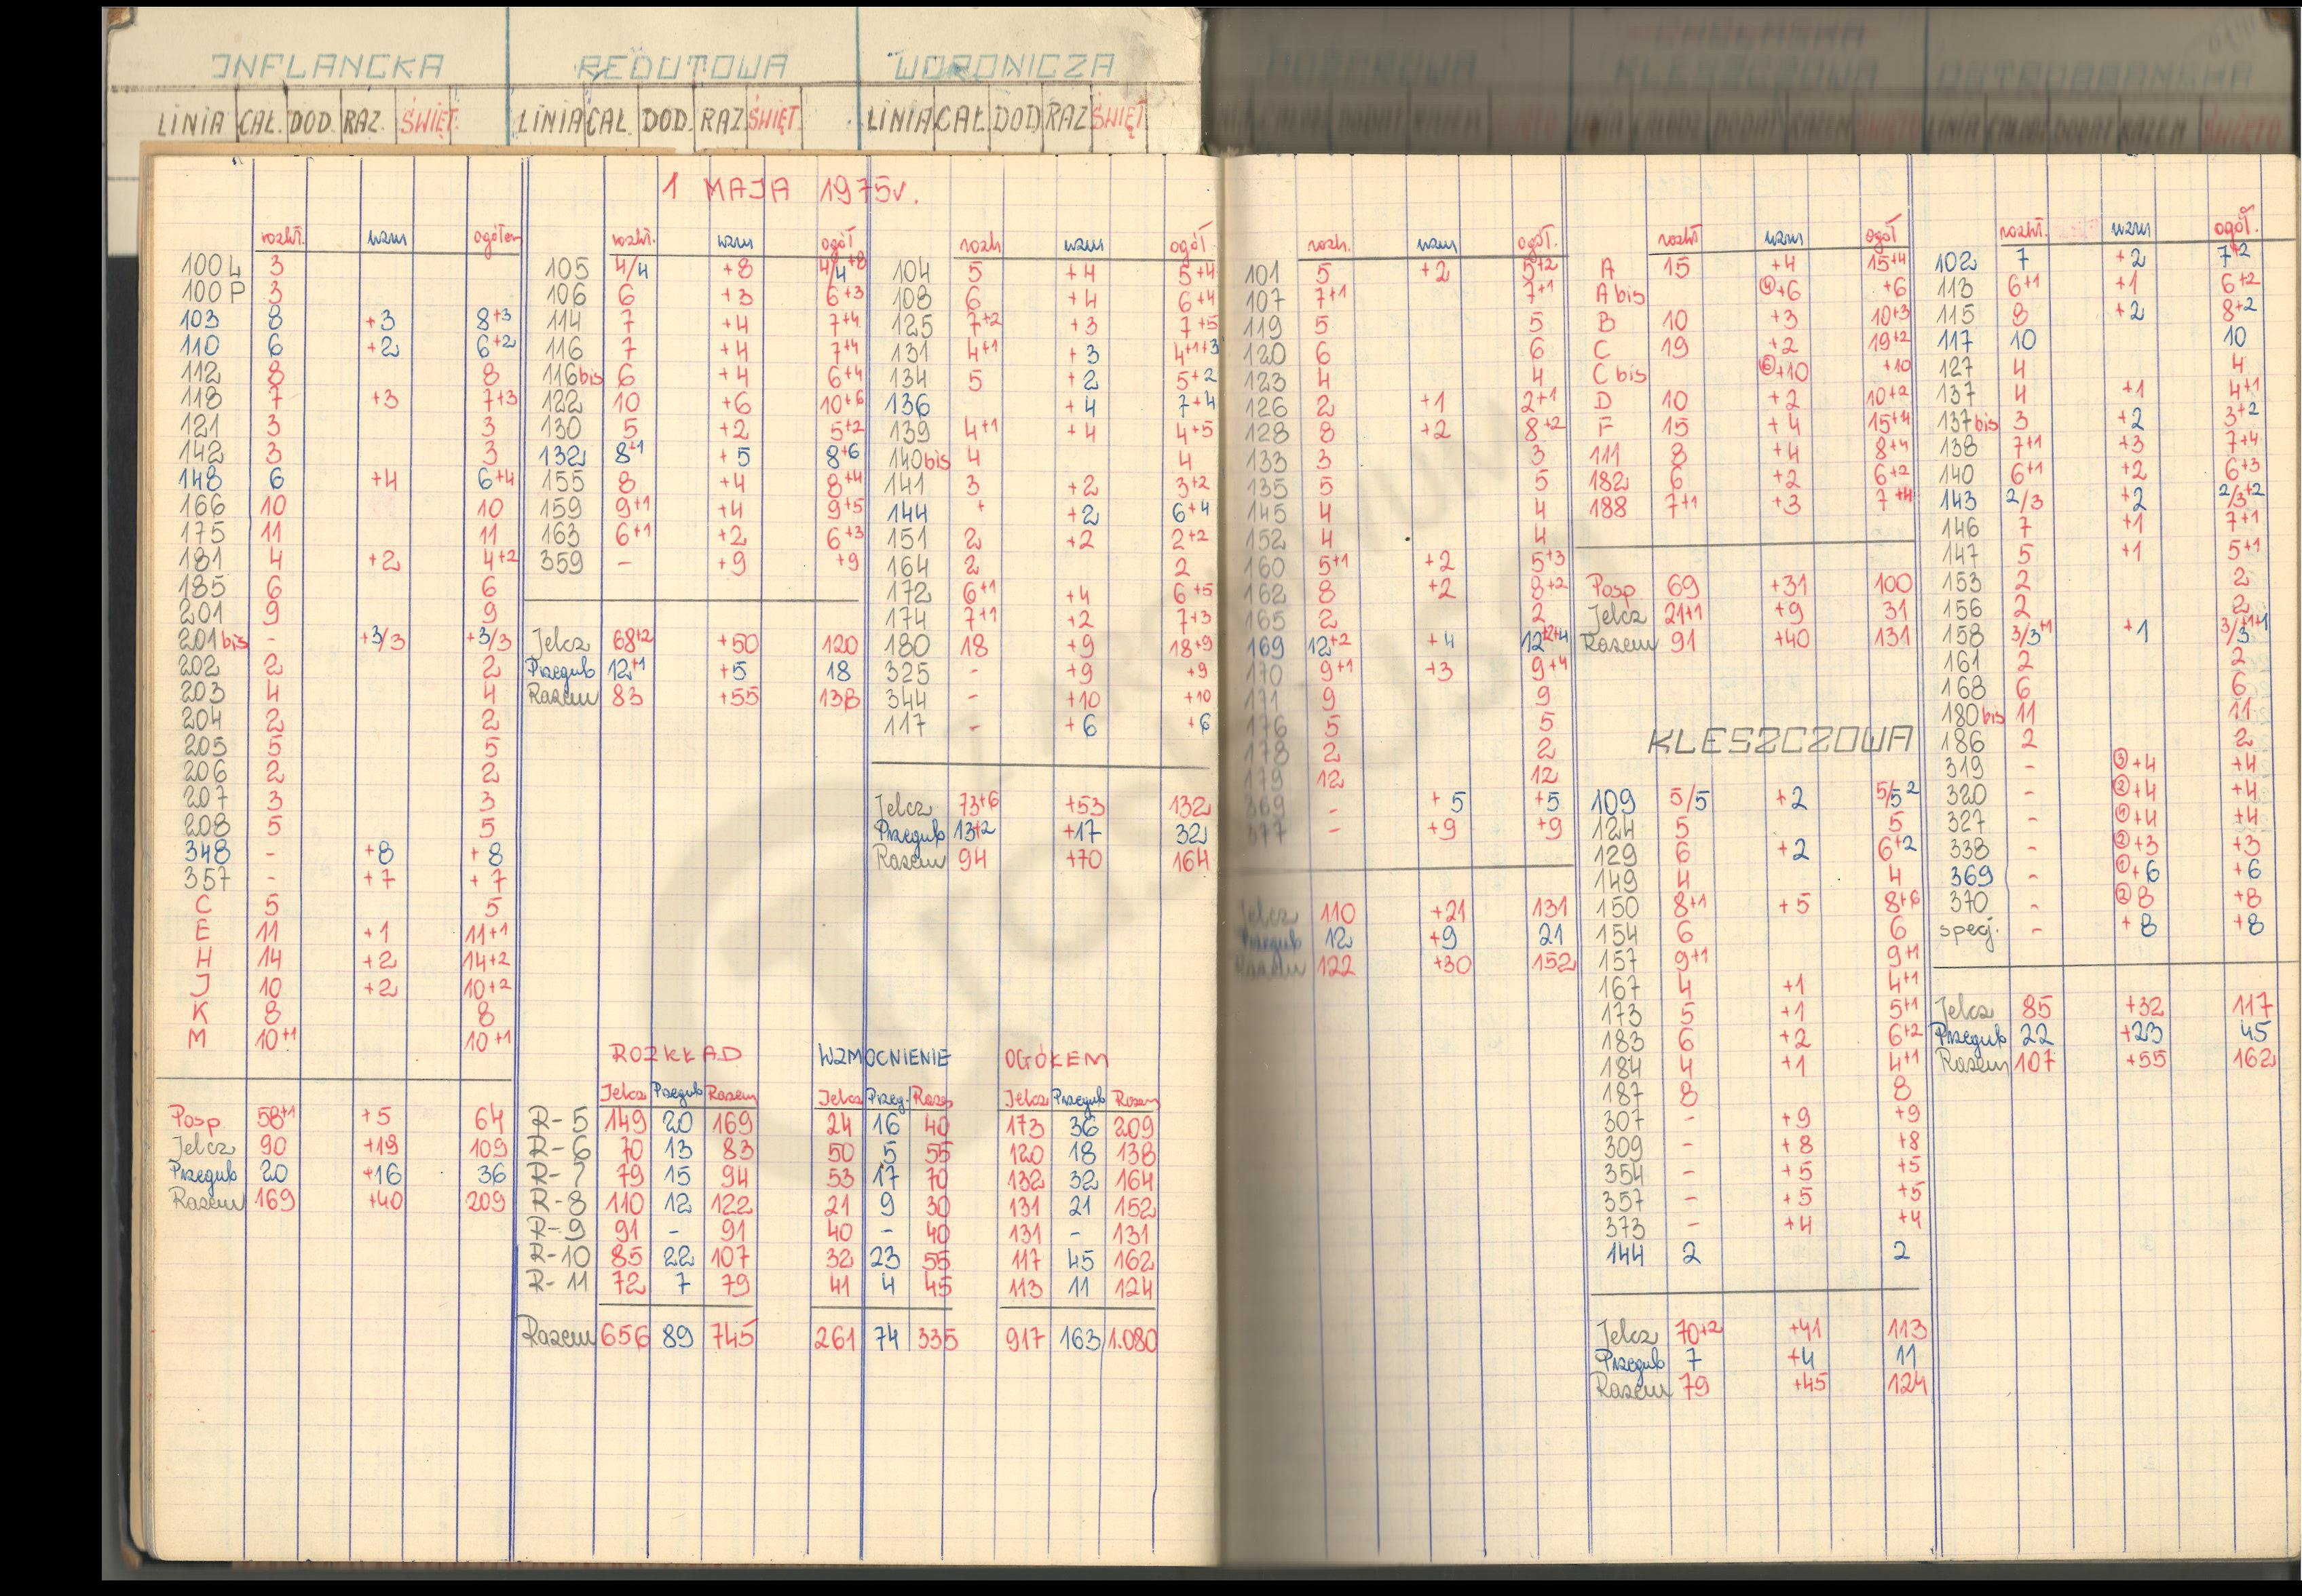 INFLANCKA REDUTOWA WORONICZA
LINIA CAŁ. DOD. RAZ. ŚWIĘT. LINIA CAŁ. DOD. RAZ ŚWIĘT. LINIA CAŁ. DOD RAZ ŚWIĘT
1 MAJA 1975r.
rozkł. wzm ogółem
100 L 3
100 P 3
103 8 +3 8+3
110 6 +2 6+2
112 8 8
118 7 +3 7+3
121 3 3
142 3 3
148 6 +4 6+4
166 10 10
175 11 11
181 4 +2 4+2
185 6 6
201 9 9
201 bis - +3/3 +3/3
202 2 2
203 4 4
204 2 2
205 5 5
206 2 2
207 3 3
208 5 5
348 - +8 +8
357 - +7 +7
C 5 5
E 11 +1 11+1
H 14 +2 14+2
J 10 +2 10+2
K 8 8
M 10+1 10+1
Posp. 58+1 +5 64
Jelcz 90 +19 109
Przegub 20 +16 36
Razem 169 +40 209
rozkł. wzm ogół
105 4/4 +8 4/4+8
106 6 +3 6+3
114 7 +4 7+4
116 7 +4 7+4
116 bis 6 +4 6+4
122 10 +6 10+6
130 5 +2 5+2
132 8+1 +5 8+6
155 8 +4 8+4
159 9+1 +4 9+5
163 6+1 +2 6+3
359 - +9 +9
Jelcz 68+2 +50 120
Przegub 12+1 +5 18
Razem 83 +55 138
rozk wzm ogół
104 5 +4 5+4
108 6 +4 6+4
125 7+2 +3 7+5
131 4+1 +3 4+1+3
134 5 +2 5+2
136 +4 7+4
139 4+1 +4 4+5
140 bis 4 4
141 3 +2 3+2
144 + +2 6+4
151 2 +2 2+2
164 2 2
172 6+1 +4 6+5
174 7+1 +2 7+3
180 18 +9 18+9
325 - +9 +9
344 - +10 +10
117 - +6 +6
Jelcz 73+6 +53 132
Przegub 13+2 +17 32
Razem 94 +70 164
ROZKŁAD WZMOCNIENIE OGÓŁEM
Jelcz Przegub Razem Jelcz Przeg. Razem Jelcz Przegub Razem
R-5 149 20 169 24 16 40 173 36 209
R-6 70 13 83 50 5 55 120 18 138
R-7 79 15 94 53 17 70 132 32 164
R-8 110 12 122 21 9 30 131 21 152
R-9 91 - 91 40 - 40 131 - 131
R-10 85 22 107 32 23 55 117 45 162
R-11 72 7 79 41 4 45 113 11 124
Razem 656 89 745 261 74 335 917 163 1.080
rozk. wzm ogół.
101 5 +2 5+2
107 7+1 7+1
119 5 5
120 6 6
123 4 4
126 2 +1 2+1
128 8 +2 8+2
133 3 3
135 5 5
145 4 4
152 4 4
160 5+1 +2 5+3
162 8 +2 8+2
165 2 2
169 12+2 +4 12+2+4
170 9+1 +3 9+4
171 9 9
176 5 5
178 2 2
179 12 12
369 - +5 +5
377 - +9 +9
Jelcz 110 +21 131
Przegub 12 +9 21
Razem 122 +30 152
rozkł wzm ogół
A 15 +4 15+4
A bis ④+6 +6
B 10 +3 10+3
C 19 +2 19+2
C bis ⑥+10 +10
D 10 +2 10+2
F 15 +4 15+4
111 8 +4 8+4
182 6 +2 6+2
188 7+1 +3 7+4
Posp. 69 +31 100
Jelcz 21+1 +9 31
Razem 91 +40 131
KLESZCZOWA
109 5/5 +2 5/5 2
124 5 5
129 6 +2 6+2
149 4 4
150 8+1 +5 8+6
154 6 6
157 9+1 9+1
167 4 +1 4+1
173 5 +1 5+1
183 6 +2 6+2
184 4 +1 4+1
187 8 8
307 - +9 +9
309 - +8 +8
354 - +5 +5
357 - +5 +5
373 - +4 +4
144 2 2
Jelcz 70+2 +41 113
Przegub 7 +4 11
Razem 79 +45 124
rozkł. wzm ogół.
102 7 +2 7+2
113 6+1 +1 6+2
115 8 +2 8+2
117 10 10
127 4 4
137 4 +1 4+1
137 bis 3 +2 3+2
138 7+1 +3 7+4
140 6+1 +2 6+3
143 2/3 +2 2/3+2
146 7 +1 7+1
147 5 +1 5+1
153 2 2
156 2 2
158 3/3+1 +1 3/3+1+1
161 2 2
168 6 6
180 bis 11 11
186 2 2
319 - ③+4 +4
320 - ②+4 +4
327 - ④+4 +4
338 - ②+3 +3
369 - ①+6 +6
370 - ②8 +8
specj. - +8 +8
Jelcz 85 +32 117
Przegub 22 +23 45
Razem 107 +55 162